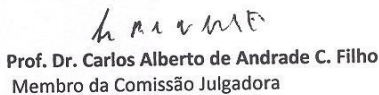 Prof. Dr. Carlos Alberto de Andrade C. Filho
Membro da Comissão Julgadora